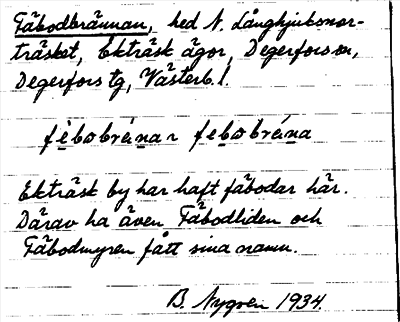 Fäbodbrännan, hed N. Långhjuksnor-
träsket, Ekträsk ägor, Degerfors sn,
Degerfors tg, Västerb. l.
fèbobrénar febobréna
Ekträsk by har haft fäbodar här.
Därav ha även Fäbodliden och
Fäbodmyren fått sina namn.
B. Nygren 1934